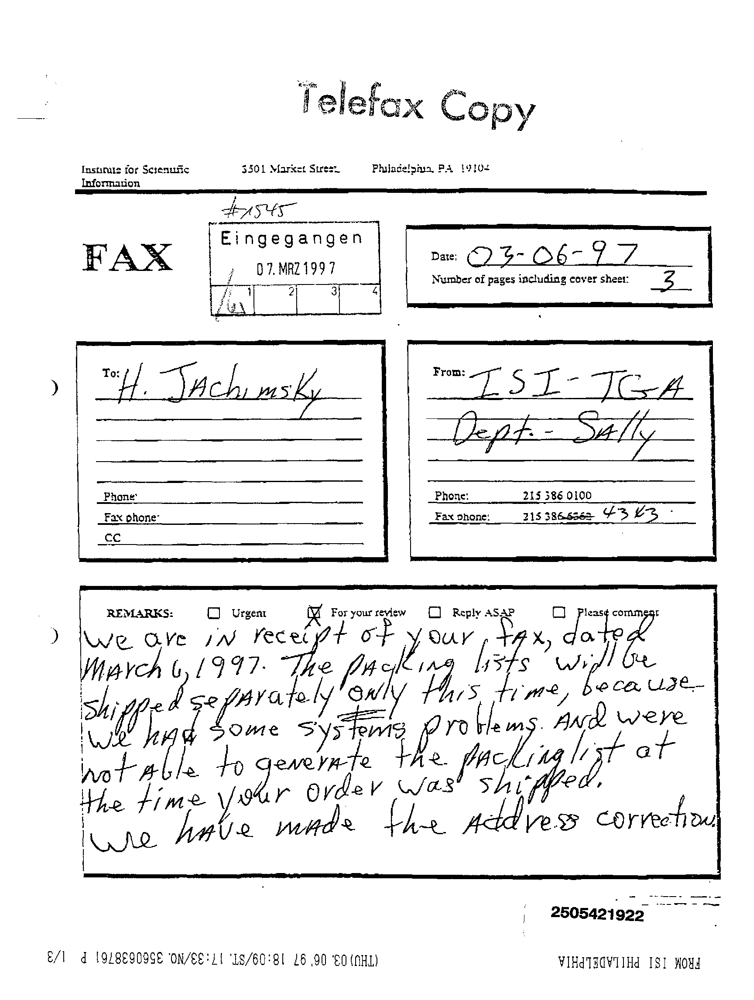 Telefax Copy
Institute for Scientific Information 3501 Market Street, Philadelphia, PA 19104
#1545
FAX
Eingegangen
07. MRZ 1997
1 2 3 4
Date: 03-06-97
Number of pages including cover sheet: 3
To: H. JAchimsky
Phone:
Fax phone:
CC
From: ISI-TGA
Dept.- SAlly
Phone: 215 386 0100
Fax phone: 215 386 6362 4343
REMARKS: ☐ Urgent ☒ For your review ☐ Reply ASAP ☐ Please comment
We are in receipt of your fAx, dated
MArch 6, 1997. The pAcKing lists will be
shipped sepArately ONly this time, because
we hAd some systems problems. ANd were
not Able to generAte the pAcKing list at
the time your order was shipped.
We hAve made the Address correction
2505421922
(THU) 03. 06' 97 18:09/ST. 17:33/NO. 3560638761 P 1/3
FROM ISI PHILADELPHIA